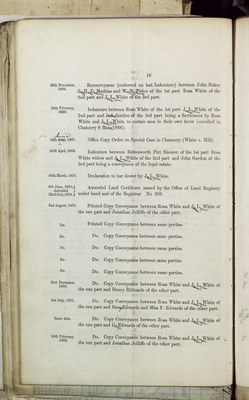 16
28th November, 1865. Reconveyance (endorsed on last Indenture) between John Baker
of the 1st part Rosa White of the
2nd part and J. L. White of the 3rd part.
26th February, 1866. Indenture between Rosa White of the 1st part J. L. White of the
2nd part and John Gordon of the 3rd part being a Settlement by Rosa
White and J. L. White to certain uses in their own favor (enrolled in
Chancery 8 1866).
1867. Office Copy Order on Special Case in Chancery (White v. Hill).
24th April, 1868. Indenture between Butterworth Pitt Shearer of the 1st part Rosa
White widow and J. L. White of the 2nd part and John Gordon of the
3rd part being a conveyance of the legal estate.
30th March, 1870. Declaration to bar dower by J. L. White.
Amended Land Certificate issued by the Office of Land Registry
under hand seal of the Registrar No.
2nd August, 1870. Printed Copy Conveyance between Rosa White and J. L. White of
the one part and Jonathan Jolliffe of the other part.
Do. Printed Copy Conveyance between same parties.
Do. Do. Copy Conveyance between same parties.
Do. Do. Copy Conveyance between same parties.
Do. Do. Copy Conveyance between same parties.
Do. Do. Copy Conveyance between same parties.
31st December, 1870. Do. Copy Conveyance between Rosa White and J. L. White of
the one part and Henry Edwards of the other part.
3rd July, 1871. Do. Copy Conveyance between Rosa White and J. L. White of
the one part and Edwards and Miss F. Edwards of the other part.
Same date. Do. Copy Conveyance between Rosa White and J. L. White of
the one part and G. Edwards of the other part.
Do. Copy Conveyance between Rosa White and J. L. White of
the one part and Jonathan Jolliffe of the other part.